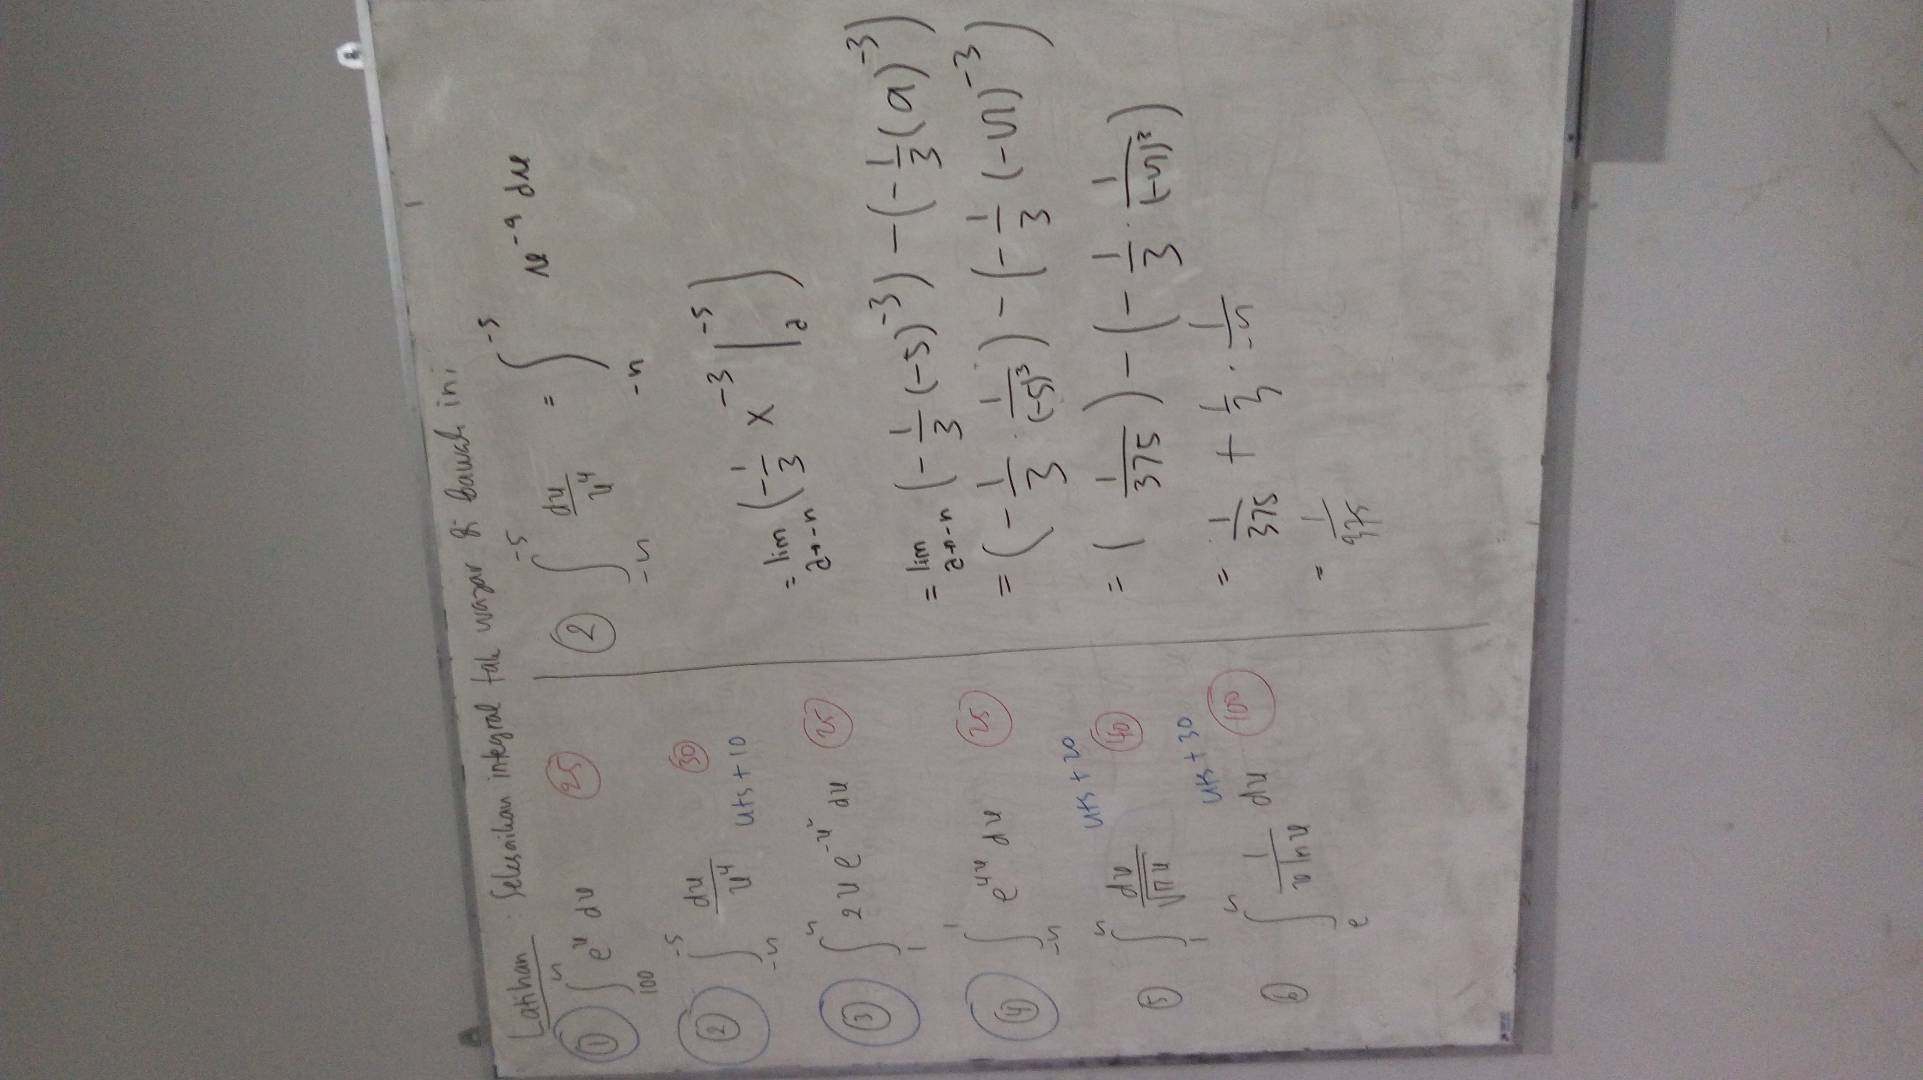 Latihan Selesaikan integral tak wajar di bawah ini
① ∫_{100}^{∞} e^x dx 25
② ∫_{-∞}^{-5} dx/x^4 30
uts + 10
③ ∫_{1}^{∞} 2x e^{-x²} dx 25
④ ∫_{-∞}^{1} e^{4x} dx 25
uts + 20
⑤ ∫_{1}^{∞} dx/√(πx) 40
uts + 30
⑥ ∫_{e}^{∞} 1/(x ln x) dx 100
② ∫_{-∞}^{-5} dx/x^4 = ∫_{-∞}^{-5} x^{-4} dx
= lim_{a→-∞} (-1/3 x^{-3} |_{a}^{-5})
= lim_{a→-∞} (-1/3 (-5)^{-3}) - (-1/3 (a)^{-3})
= (-1/3 · 1/(-5)^3) - (-1/3 (-∞)^{-3})
= (1/375) - (-1/3 · 1/(-∞)^3)
= 1/375 + 1/3 · 1/-∞
= 1/375